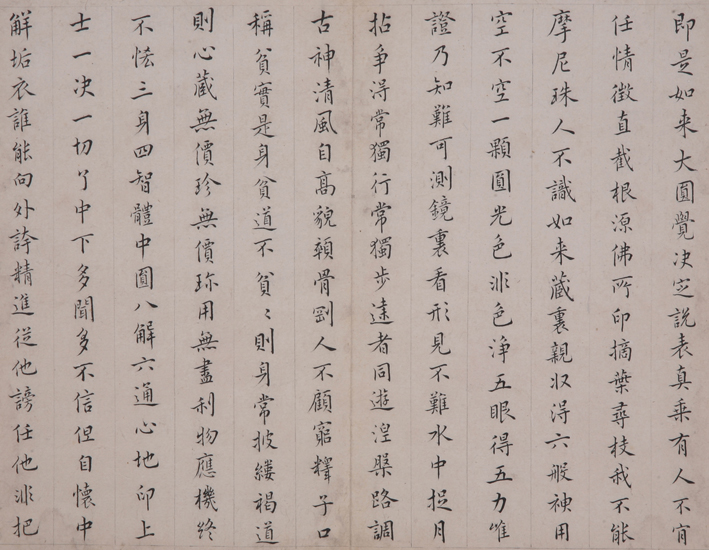 即是如来大圓覺决定說表真乗有人不肎
任情徵直截根源佛所印摘葉尋枝我不能
摩尼珠人不識如来藏裏親収得六般神用
空不空一顆圓光色非色淨五眼得五力唯
證乃知難可測鏡裏看形見不難水中捉月
拈爭得常獨行常獨步達者同遊涅槃路調
古神清風自高貌顇骨剛人不顧窮釋子口
稱貧實是身貧道不貧〻則身常披縷褐道
則心藏無價珍無價珎用無盡利物應機終
不恡三身四智體中圓八解六通心地印上
士一决一切了中下多聞多不信但自懷中
觧垢衣誰能向外誇精進従他謗任他非把